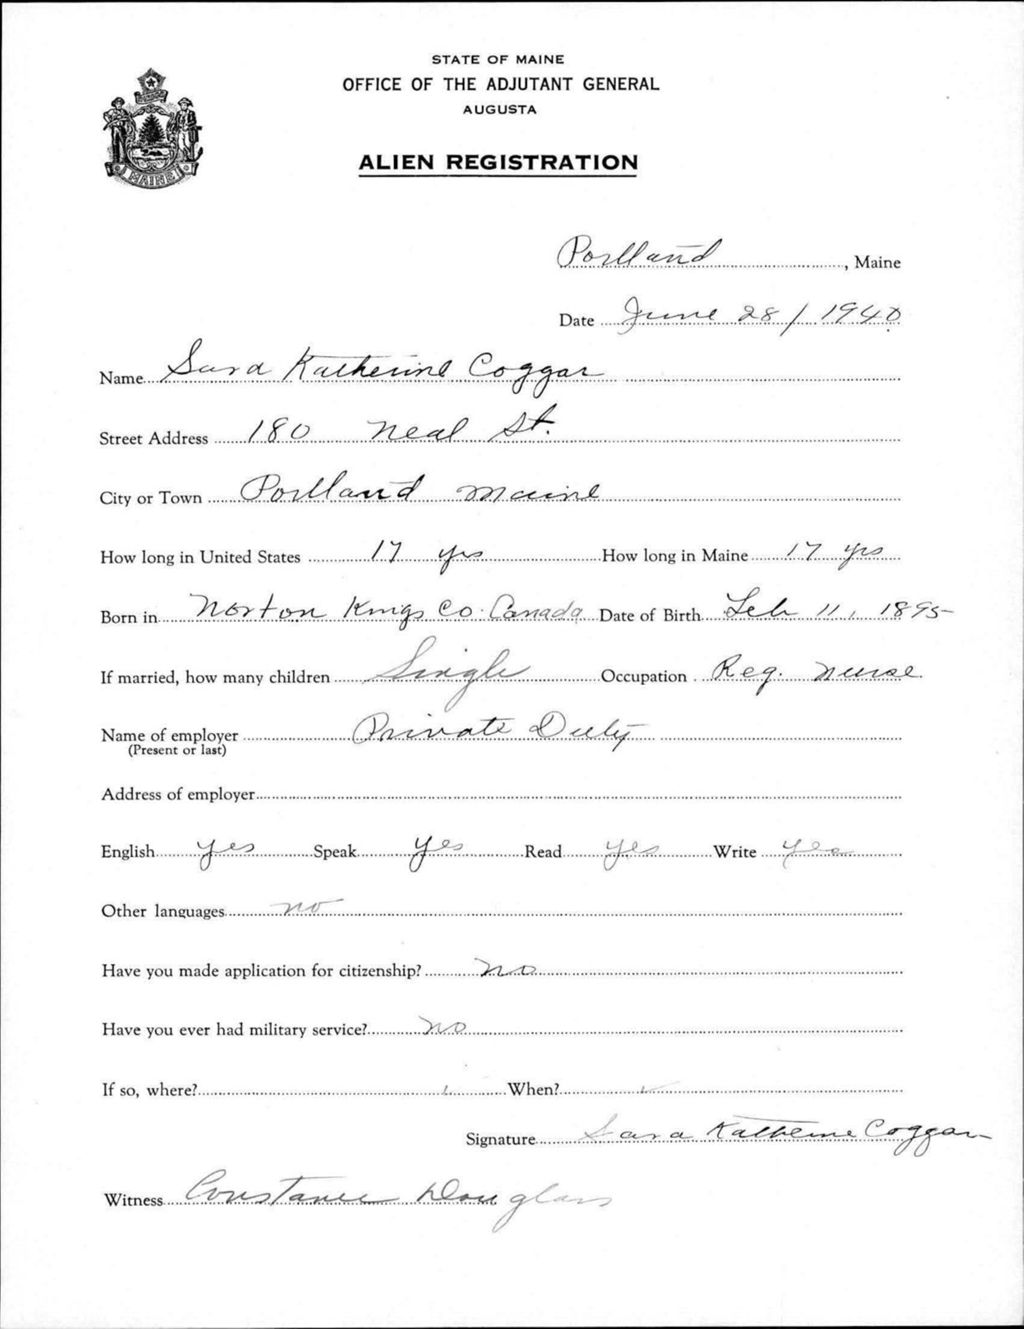 STATE OF MAINE
OFFICE OF THE ADJUTANT GENERAL
AUGUSTA
ALIEN REGISTRATION
MAINE
Portland, Maine
Date June 28/1940
Name Sara Katherine Coggar
Street Address 180 Neal St.
City or Town Portland Maine
How long in United States 17 yrs How long in Maine 17 yrs
Born in Norton Kings Co. Canada Date of Birth Feb 11, 1895
If married, how many children Single Occupation Reg. Nurse.
Name of employer Private Duty
(Present or last)
Address of employer
English yes Speak yes Read yes Write yes
Other languages no
Have you made application for citizenship? no
Have you ever had military service? no
If so, where? When?
Signature Sara Katherine Coggar
Witness Constance Douglass